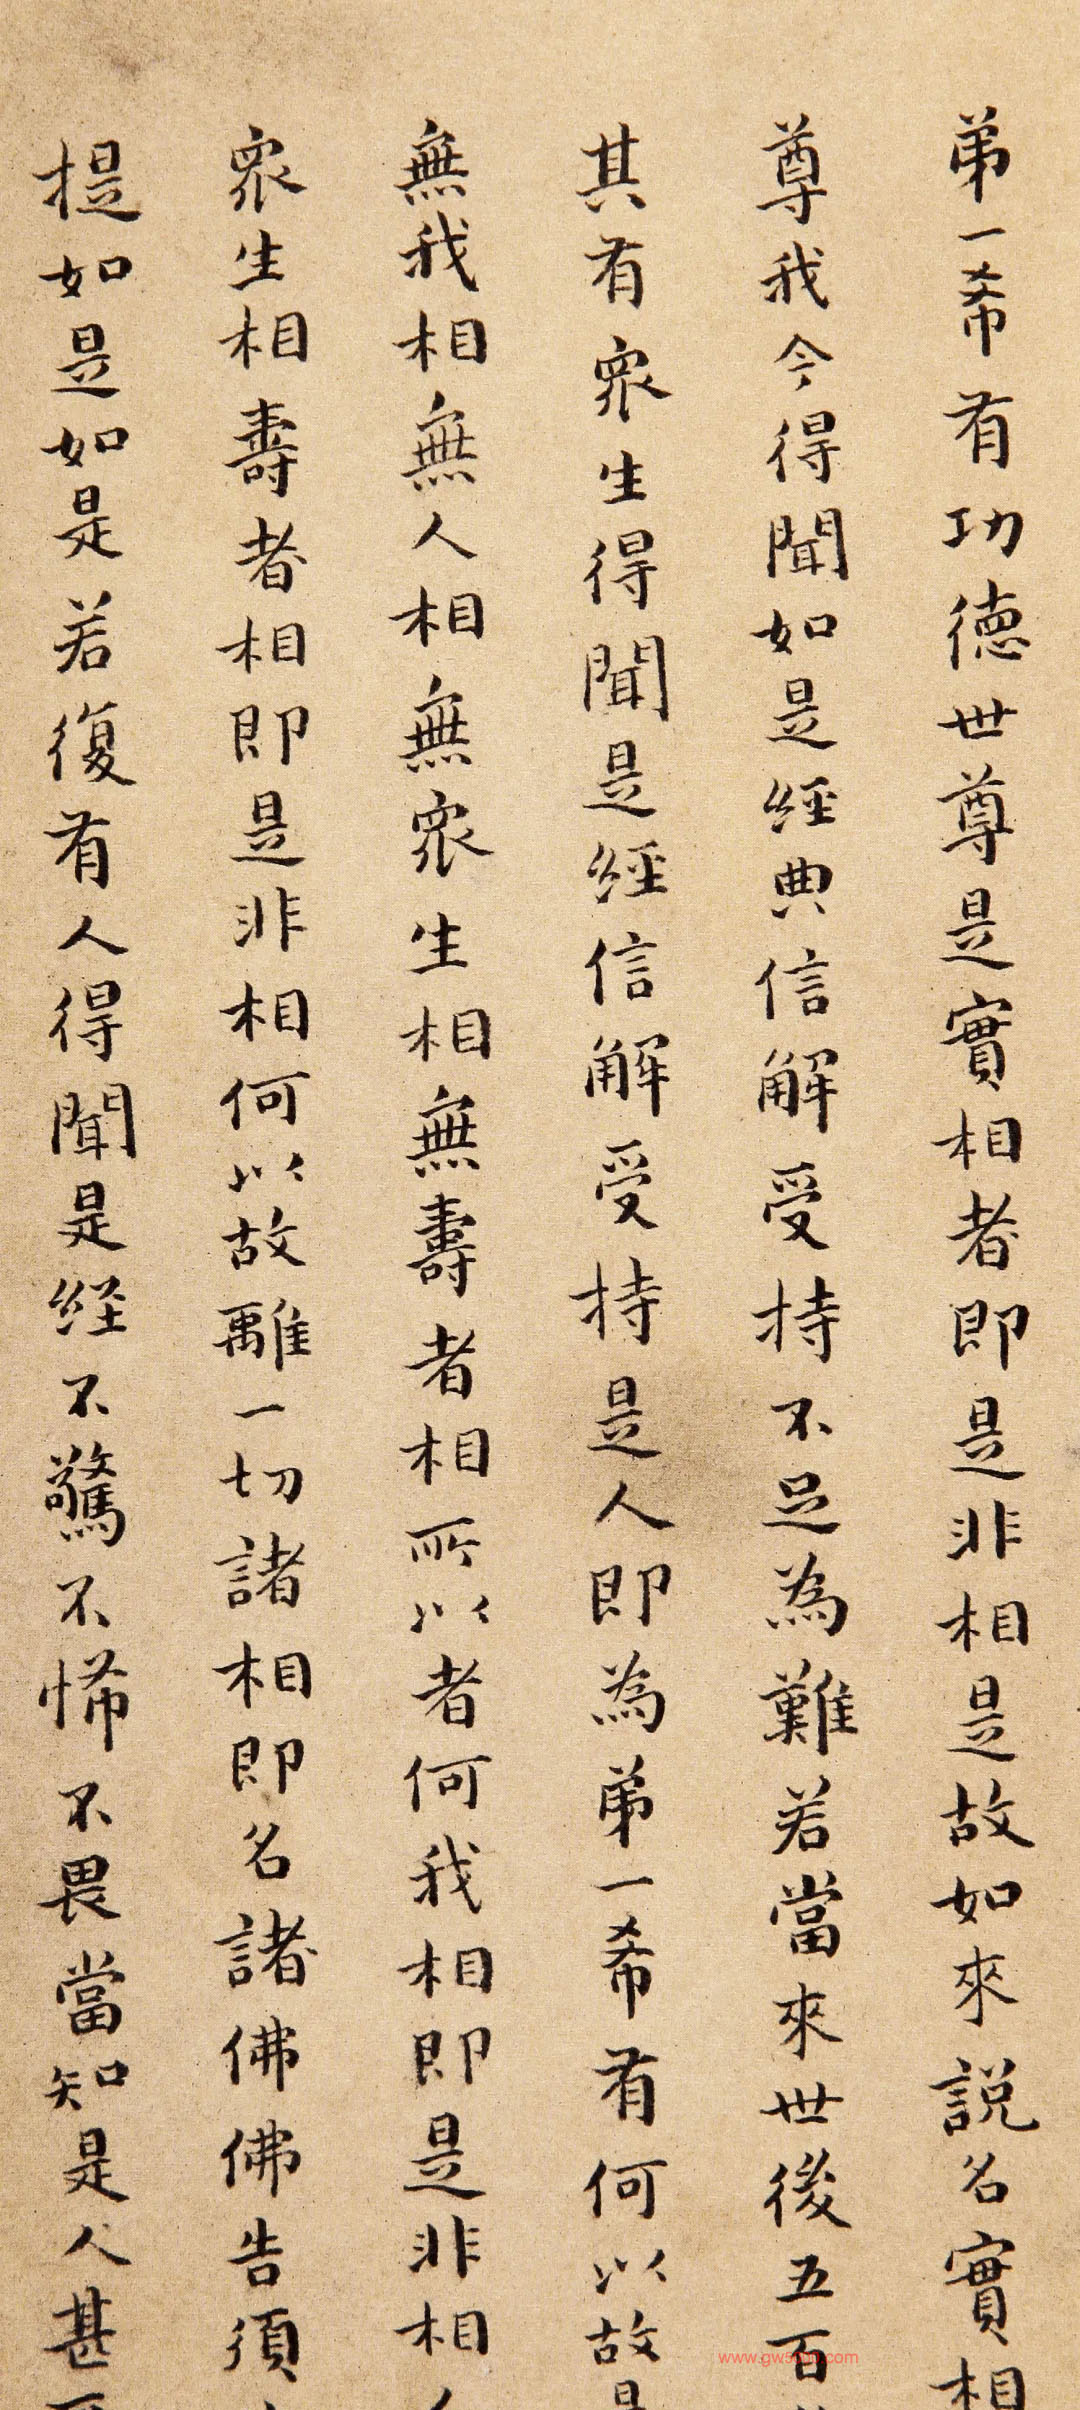 弟一希有功德世尊是實相者即是非相是故如來説名實相
尊我今得聞如是經典信解受持不足為難若當來世後五百
其有眾生得聞是經信解受持是人即為弟一希有何以故
無我相無人相無眾生相無壽者相所以者何我相即是非相
眾生相壽者相即是非相何以故離一切諸相即名諸佛佛告須
提如是如是若復有人得聞是経不驚不怖不畏當知是人甚
www.gw5000.com